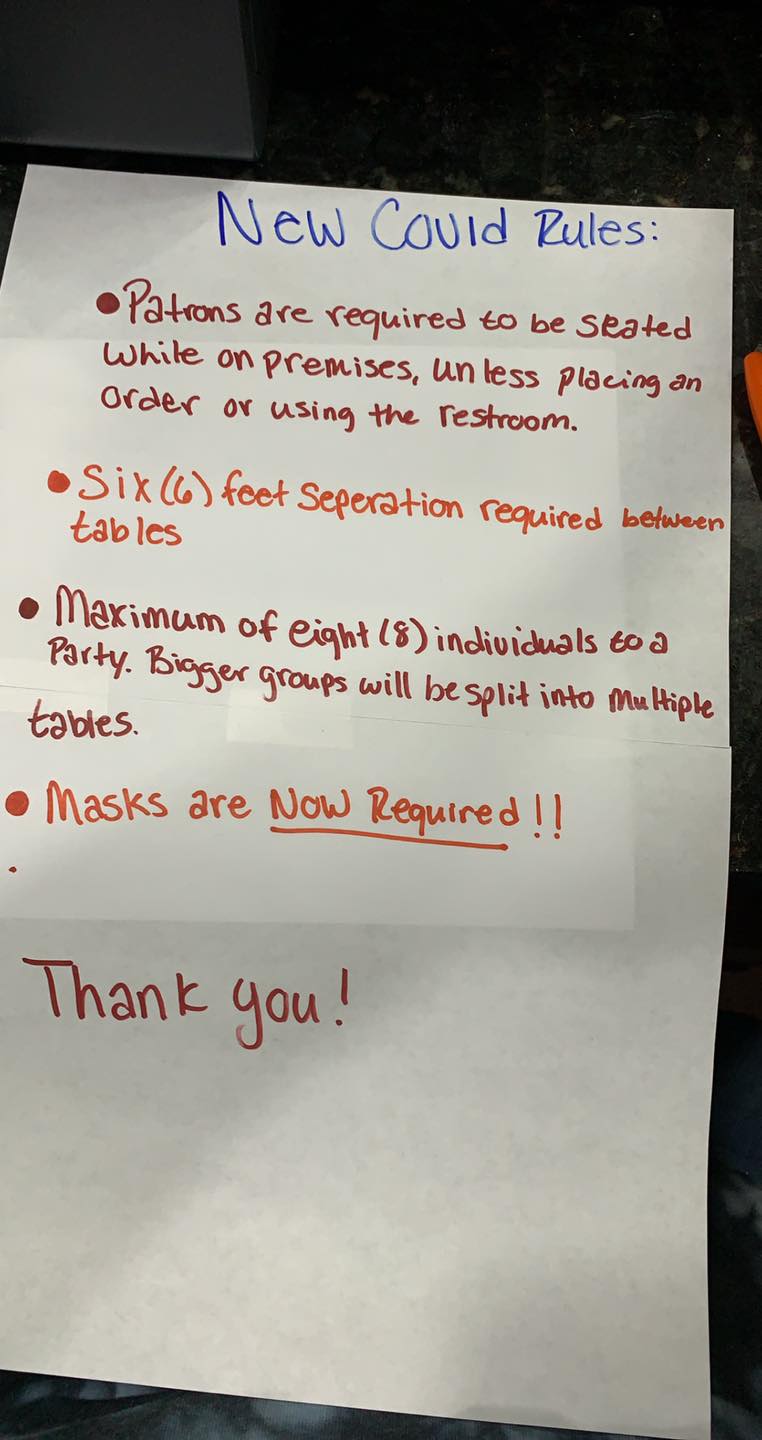 New Covid Rules:
• Patrons are required to be seated
while on premises, unless placing an
order or using the restroom.
• Six (6) feet Seperation required between
tables
• Maximum of eight (8) individuals to a
Party. Bigger groups will be split into multiple
tables.
• Masks are Now Required!!
Thank you!